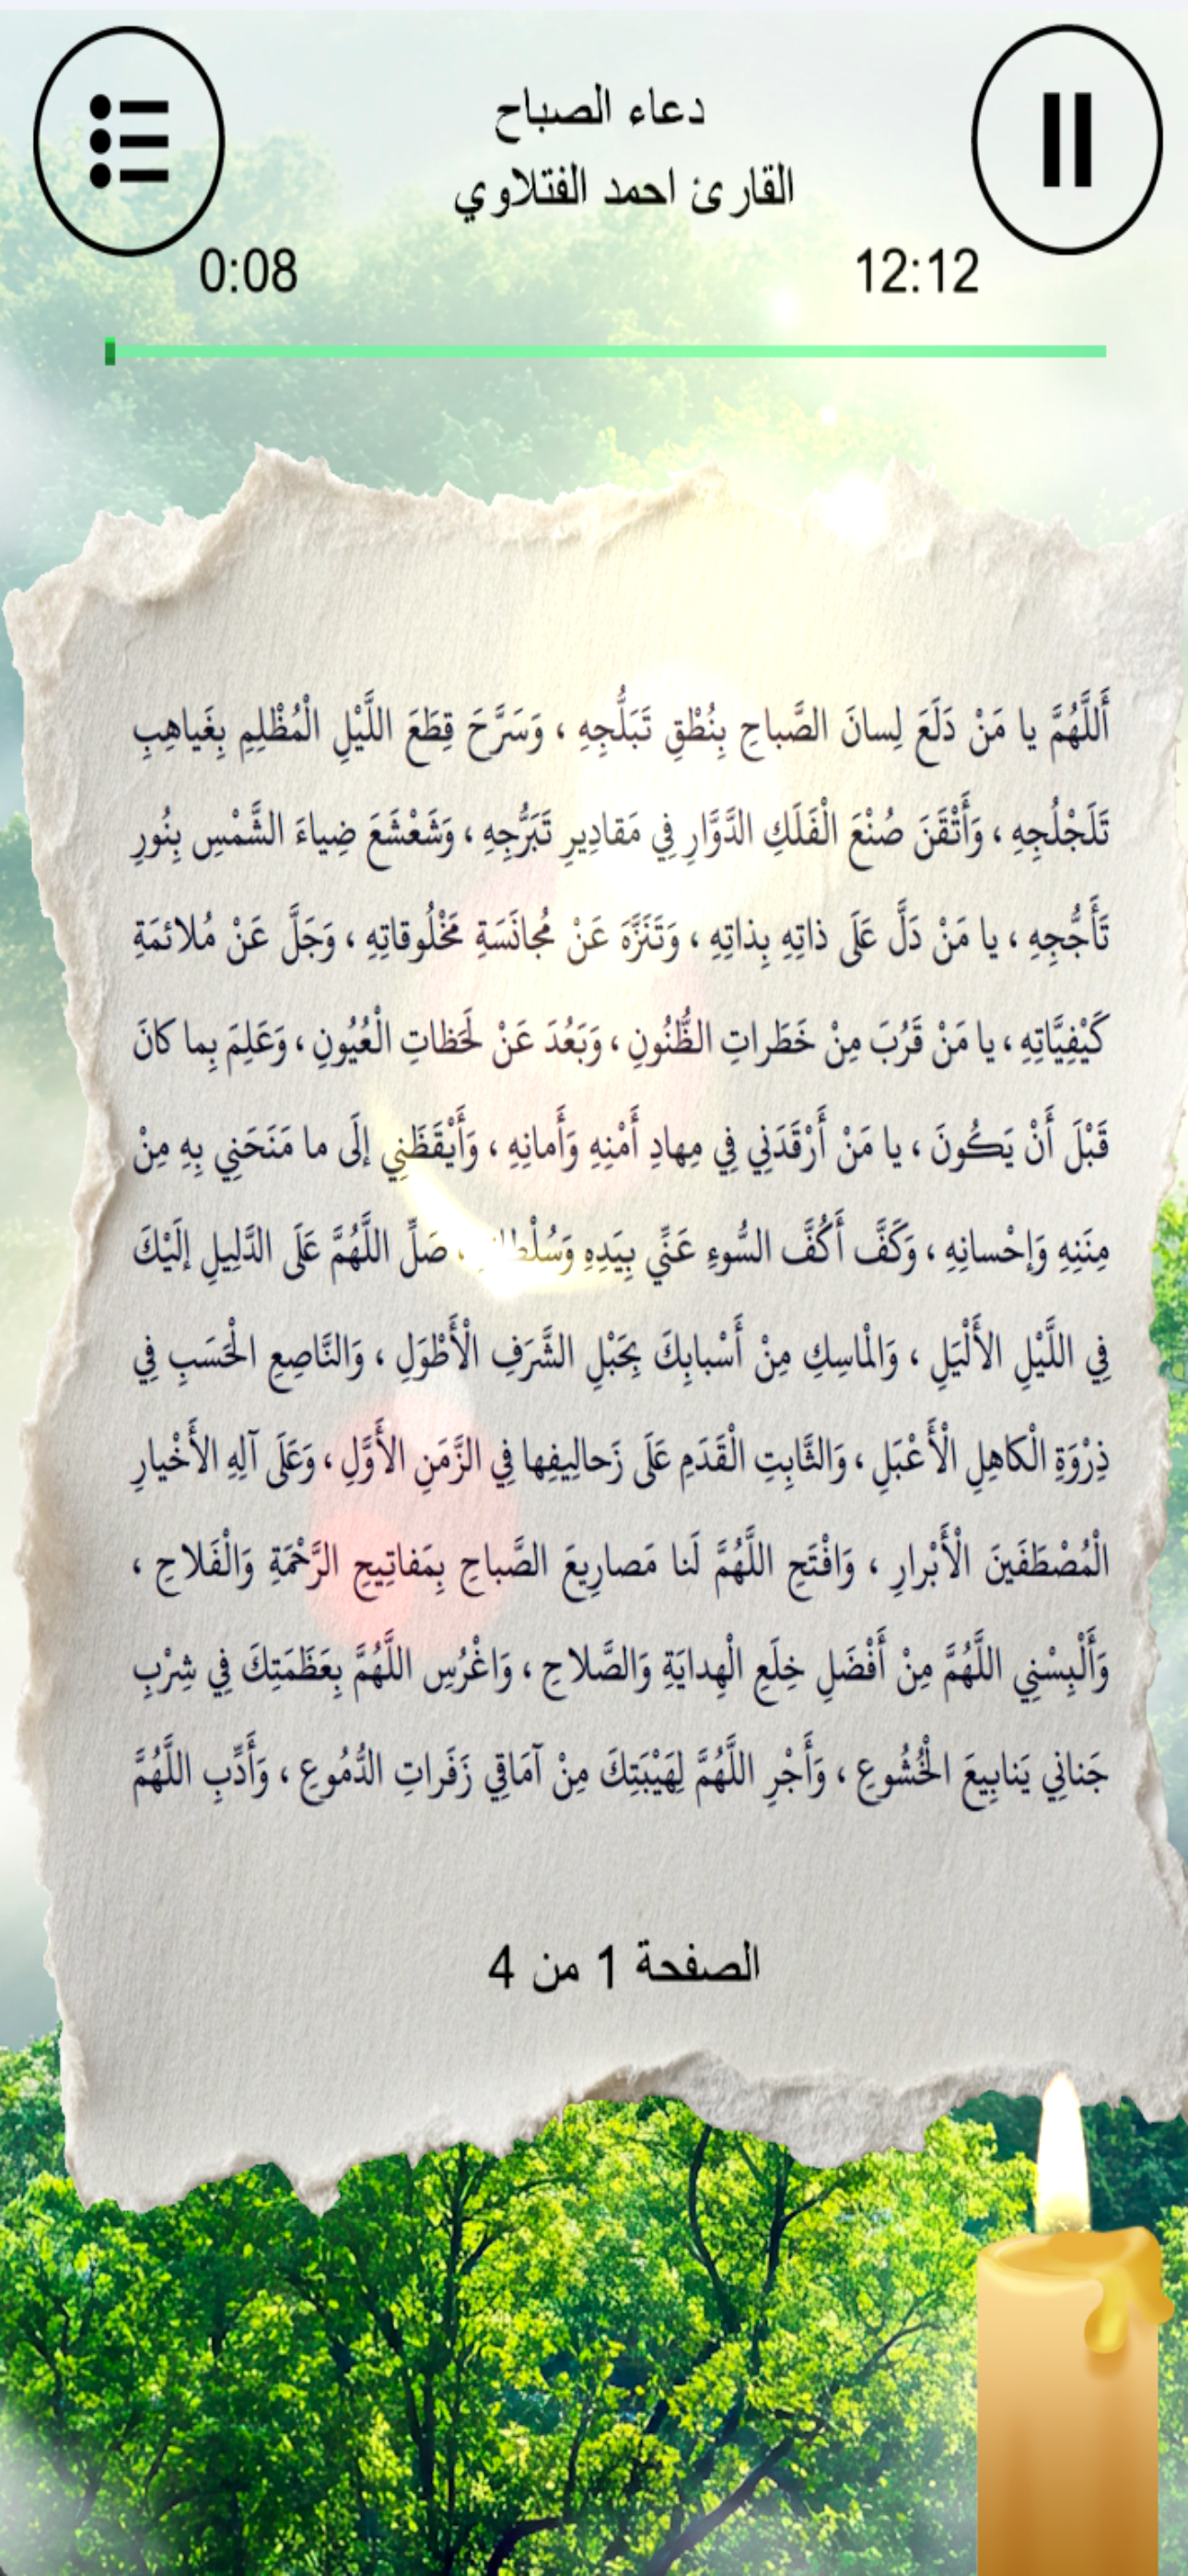 دعاء الصباح
القارئ احمد الفتلاوي
0:08
12:12
أَللَّهُمَّ يا مَنْ دَلَعَ لِسانَ الصَّباحِ بِنُطْقِ تَبَلُّجِهِ ، وَسَرَّحَ قِطَعَ اللَّيْلِ الْمُظْلِمِ بِغَياهِبِ
تَلَجْلُجِهِ ، وَأَتْقَنَ صُنْعَ الْفَلَكِ الدَّوَّارِ فِي مَقادِيرِ تَبَرُّجِهِ ، وَشَعْشَعَ ضِياءَ الشَّمْسِ بِنُورِ
تَأَجُّجِهِ ، يا مَنْ دَلَّ عَلَى ذاتِهِ بِذاتِهِ ، وَتَنَزَّهَ عَنْ مُجانَسَةِ مَخْلُوقاتِهِ ، وَجَلَّ عَنْ مُلائمَةِ
كَيْفِيَّاتِهِ ، يا مَنْ قَرُبَ مِنْ خَطَراتِ الظُّنُونِ ، وَبَعُدَ عَنْ لَحَظاتِ الْعُيُونِ ، وَعَلِمَ بِما كانَ
قَبْلَ أَنْ يَكُونَ ، يا مَنْ أَرْقَدَنِي فِي مِهادِ أَمْنِهِ وَأَمانِهِ ، وَأَيْقَظَنِي إلَى ما مَنَحَنِي بِهِ مِنْ
مِنَنِهِ وَإحْسانِهِ ، وَكَفَّ أَكُفَّ السُّوءِ عَنِّي بِيَدِهِ ، صَلِّ اللَّهُمَّ عَلَى الدَّلِيلِ إلَيْكَ
فِي اللَّيْلِ الأَلْيَلِ ، وَالْماسِكِ مِنْ أَسْبابِكَ بِحَبْلِ الشَّرَفِ الْأَطْوَلِ ، وَالنَّاصِعِ الْحَسَبِ فِي
ذِرْوَةِ الْكاهِلِ الْأَعْبَلِ ، وَالثَّابِتِ الْقَدَمِ عَلَى زَحالِيفِها فِي الزَّمَنِ الأَوَّلِ ، وَعَلَى آلِهِ الأَخْيارِ
الْمُصْطَفَينَ الْأَبْرارِ ، وَافْتَحِ اللَّهُمَّ لَنا مَصارِيعَ الصَّباحِ بِمَفاتِيحِ الرَّحْمَةِ وَالْفَلاحِ ،
وَأَلْبِسْنِي اللَّهُمَّ مِنْ أَفْضَلِ خِلَعِ الْهِدايَةِ وَالصَّلاحِ ، وَاغْرُسِ اللَّهُمَّ بِعَظَمَتِكَ فِي شِرْبِ
جَنانِي يَنابِيعَ الْخُشُوعِ ، وَأَجْرِ اللَّهُمَّ لِهَيْبَتِكَ مِنْ آمَاقِي زَفَراتِ الدُّمُوعِ ، وَأَدِّبِ اللَّهُمَّ
الصفحة 1 من 4